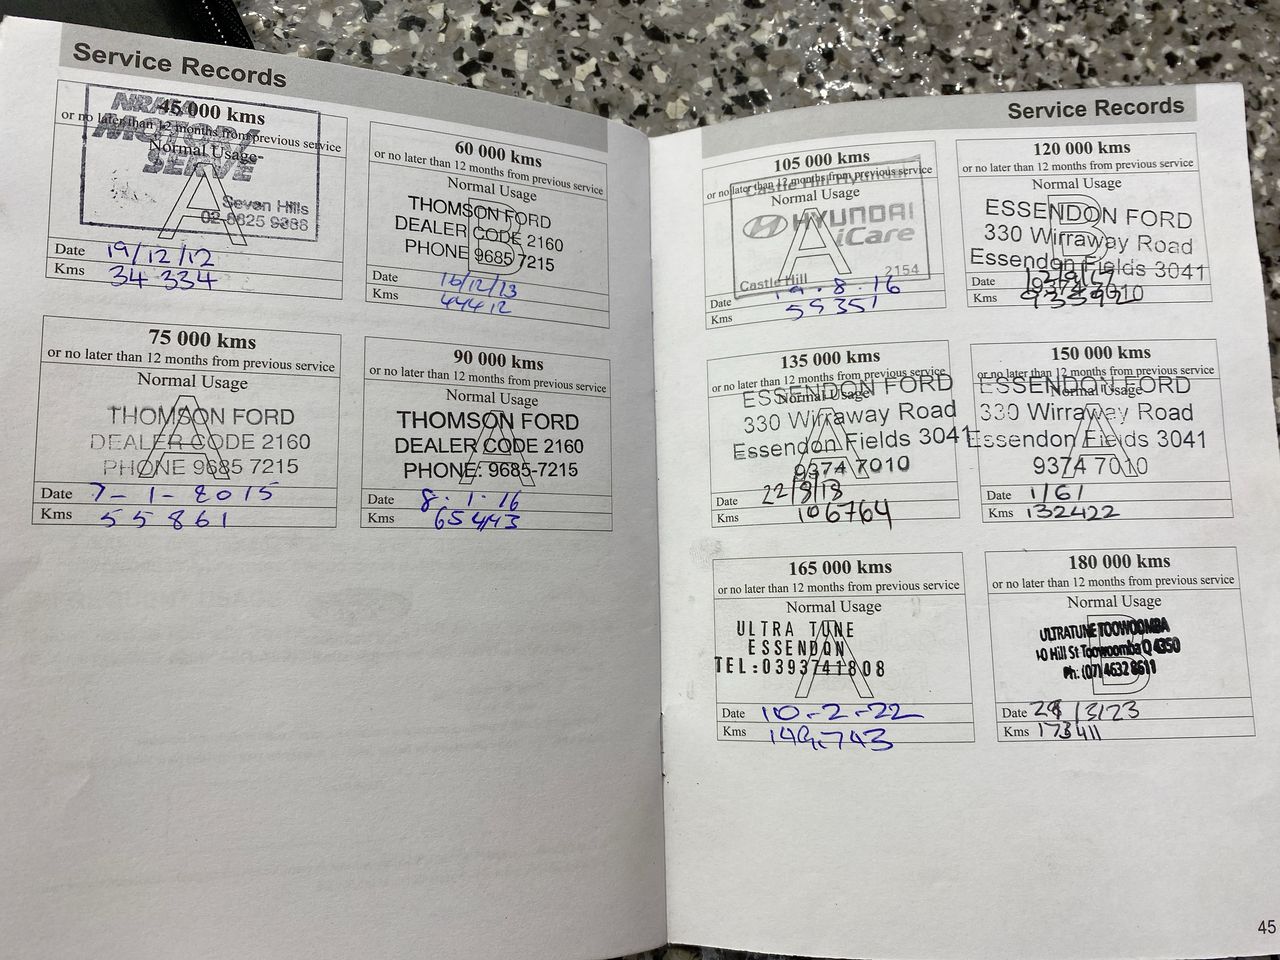 Service Records
45 000 kms
or no later than 12 months from previous service
Normal Usage
NRMA
MOTOR
SERVE
A
Seven Hills
02-8825 9888
Date 19/12/12
Kms 34 334
60 000 kms
or no later than 12 months from previous service
Normal Usage
B
THOMSON FORD
DEALER CODE 2160
PHONE 9685 7215
Date 16/12/13
Kms 44412
75 000 kms
or no later than 12 months from previous service
Normal Usage
A
THOMSON FORD
DEALER CODE 2160
PHONE 9685 7215
Date 7-1-2015
Kms 55861
90 000 kms
or no later than 12 months from previous service
Normal Usage
A
THOMSON FORD
DEALER CODE 2160
PHONE: 9685-7215
Date 8.1.16
Kms 65443
Service Records
105 000 kms
or no later than 12 months from previous service
Castle Hill Hyundai
Normal Usage
A
HYUNDAI
iCare
Castle Hill 2154
Date 19.8.16
Kms 59351
120 000 kms
or no later than 12 months from previous service
Normal Usage
B
ESSENDON FORD
330 Wirraway Road
Essendon Fields 3041
9374 7010
Date
Kms 93592
135 000 kms
or no later than 12 months from previous service
Normal Usage
A
ESSENDON FORD
330 Wirraway Road
Essendon Fields 3041
9374 7010
Date 22/8/18
Kms 106764
150 000 kms
or no later than 12 months from previous service
Normal Usage
A
ESSENDON FORD
330 Wirraway Road
Essendon Fields 3041
9374 7010
Date 1/6/
Kms 132422
165 000 kms
or no later than 12 months from previous service
Normal Usage
A
ULTRA TUNE
ESSENDON
TEL:0393741808
Date 10-2-22
Kms 149,743
180 000 kms
or no later than 12 months from previous service
Normal Usage
B
ULTRATUNE TOOWOOMBA
Hill St Toowoomba Q 4350
Ph: (07) 4632 8611
Date /3/23
Kms 173411
45